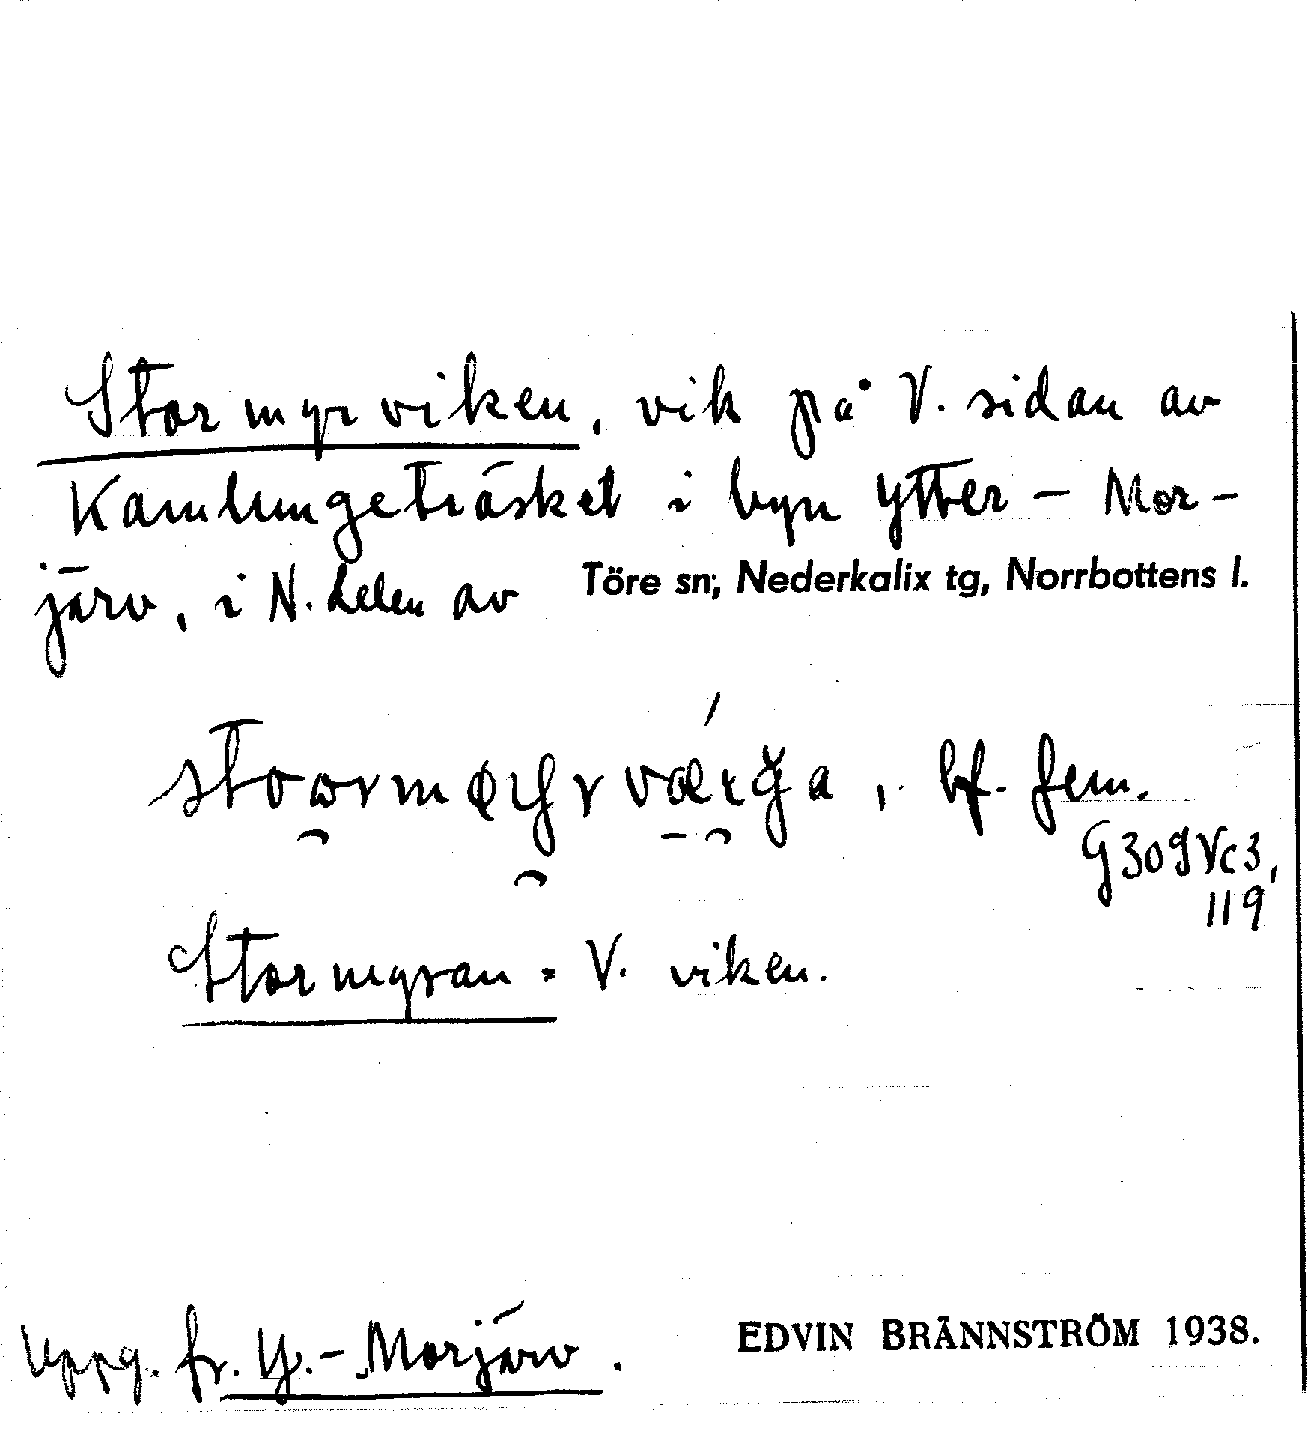 Stormyrviken, vik på V. sidan av
Kamlungeträsket i byn Ytter-Mor-
järv, i N. delen av Töre sn, Nederkalix tg, Norrbottens l.
bf. fem.
G309Vc3,
119
Stormyran = V. viken.
Uppg. fr. Y.-Morjärv.
EDVIN BRÄNNSTRÖM 1938.